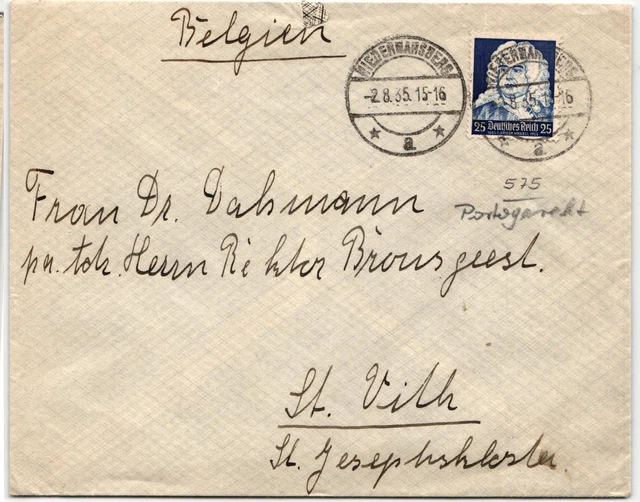 Belgien
NIEDERMARSBERG
-2.8.35.15-16
a
NIEDERMARSBERG
8.35.15-16
a
25 Deutsches Reich 25
575
Portogerecht
Frau Dr. Dahmann
pr. Herrn Rektor Bronsgeest.
St. Vith
St. Josephskloster.